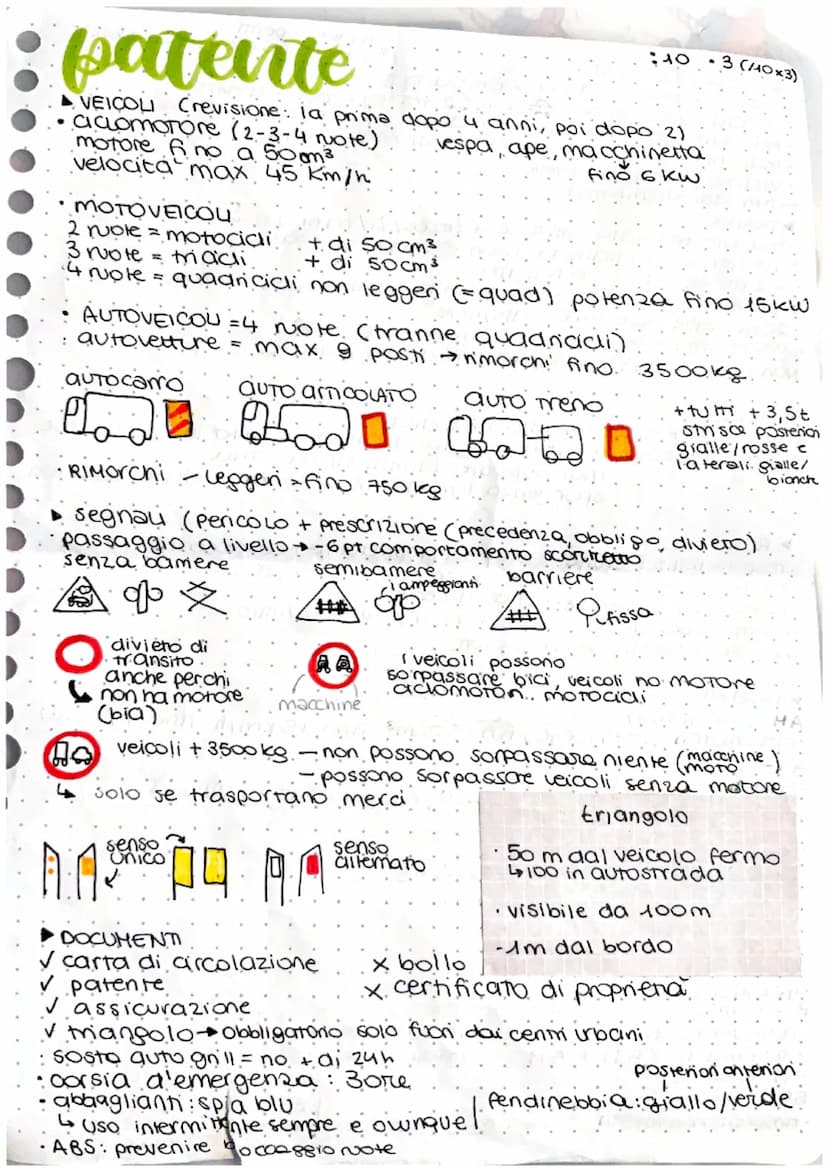 patente
:10 · 3 (/10x3)
▶ VEICOLI (revisione: la prima dopo 4 anni, poi dopo 2)
• CICLOMOTORE (2-3-4 ruote) vespa, ape, macchinetta
motore fino a 50 cm³
fino 6 KW
velocità max 45 Km/h
• MOTOVEICOLI
2 ruote = motocicli + di 50 cm³
3 ruote = tricicli + di 50 cm³
4 ruote = quadricicli non leggeri (= quad) potenza fino 15kw
• AUTOVEICOLI = 4 ruote (tranne quadricicli)
: autovetture = max 9 posti → rimorchi fino 3500 kg
autocarro
auto articolato
auto treno
+ tutti + 3,5t
strisce posteriori
gialle/rosse e
laterali gialle/
bianche
• RIMORCHI - leggeri = fino 750 kg
▶ segnali (pericolo + prescrizione (precedenza, obbligo, divieto)
• passaggio a livello → -6 pt comportamento scorretto
senza barriere
semibarriere
lampeggianti
barriere
fissa
divieto di
transito
anche per chi
non ha motore
(bici)
macchine
i veicoli possono
sorpassare bici, veicoli no motore
ciclomotori, motocicli
veicoli + 3500 kg - non possono sorpassare niente (macchine moto)
- possono sorpassare veicoli senza motore
↳ solo se trasportano merci
senso
unico
senso
alternato
triangolo
• 50 m dal veicolo fermo
↳ 100 in autostrada
• visibile da 100m
- 1m dal bordo
▶ DOCUMENTI
✓ carta di circolazione x bollo
✓ patente x certificato di proprietà
✓ assicurazione
✓ triangolo → obbligatorio solo fuori dai centri urbani
: sosta autogrill = no + di 24h
• corsia d'emergenza : 3 ore
posteriori anteriori
• abbaglianti : spia blu
fendinebbia : giallo/verde
↳ uso intermittente sempre e ovunque
• ABS : prevenire bloccaggio ruote